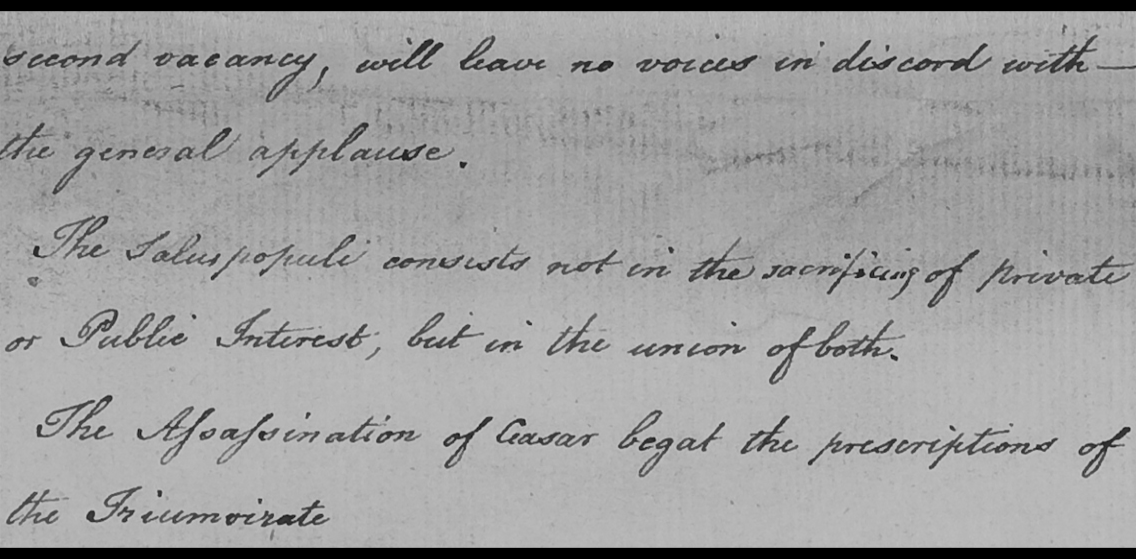 second vacancy, will leave no voices in discord with —
the general applause.
The Salus populi consists not in the sacrificing of private
or Public Interest, but in the union of both.
The Aſsaſsination of Ceasar begat the prescriptions of
the Triumvirate